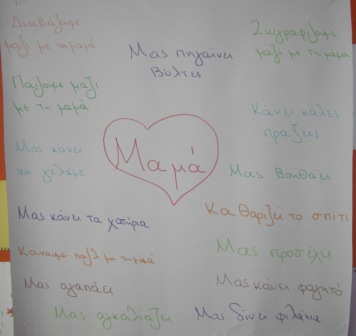 Διαβάζουμε
μαζί με τη μαμά
Μας πηγαίνει
βόλτες
Ζωγραφίζουμε
μαζί με τη μαμά
Παίζουμε μαζί
με τη μαμά
Κάνει καλές
πράξεις
Μαμά
Μας κάνει
να γελάμε
Μας βοηθάει
Μας κάνει τα χατίρια
Καθαρίζει το σπίτι
Κάνουμε παζλ με τη μαμά
Μας προσέχει
Μας αγαπάει
Μας κάνει φαγητό
Μας αγκαλιάζει
Μας δίνει φιλάκια